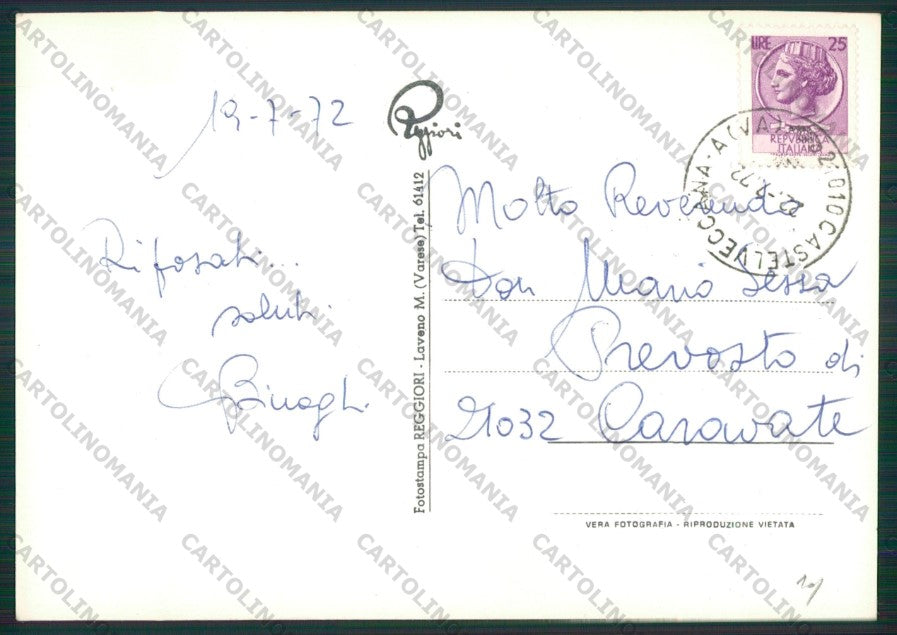 19-7-72
Riposati...
saluti
Binaghi
Reggiori
Fotostampa REGGIORI - Laveno M. (Varese) Tel. 61412
LIRE 25
REPVBBLICA
ITALIANA
21010 CASTELVECCANA - A (VA)
22.-7.72
Molto Reverendo
Don Mario Sessa
Prevosto di
21032 Caravate
VERA FOTOGRAFIA - RIPRODUZIONE VIETATA
CARTOLINOMANIA